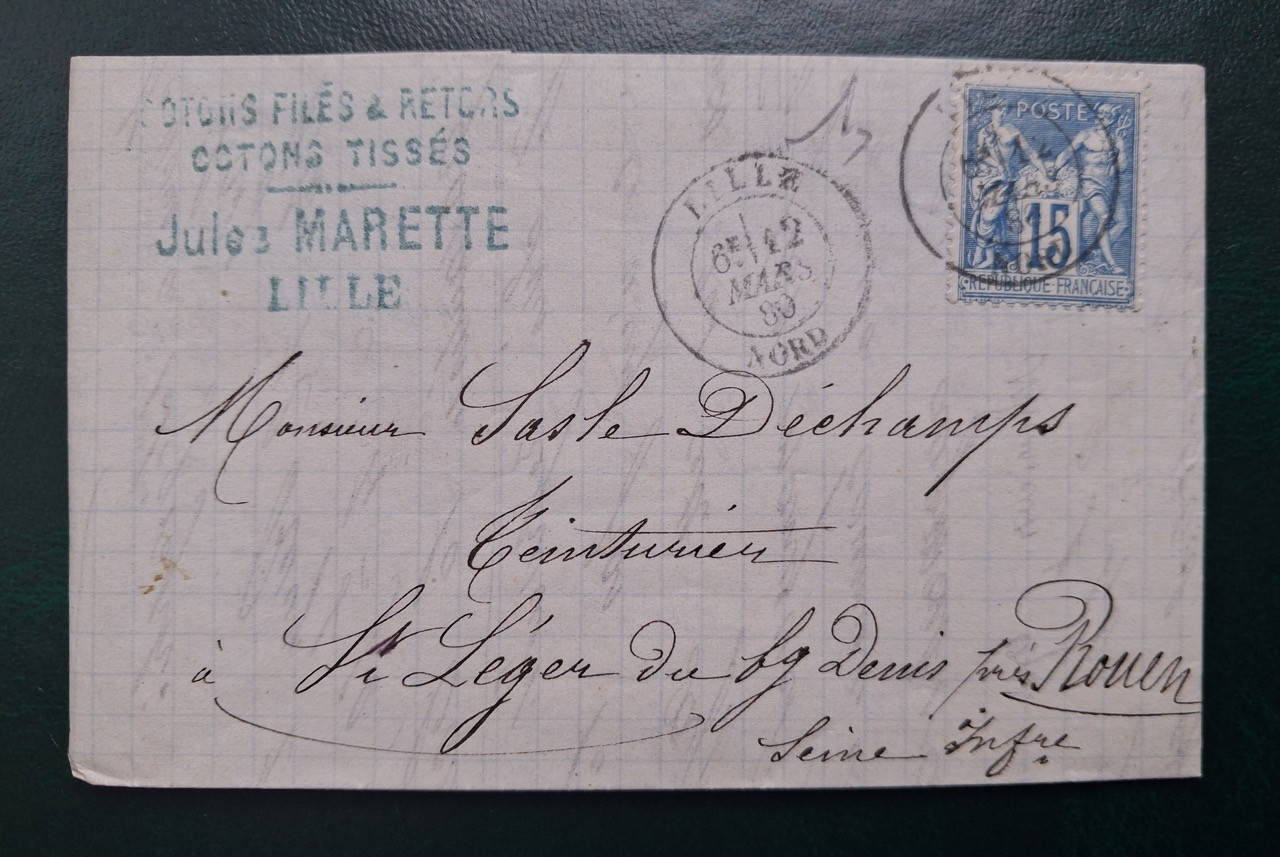 COTONS FILÉS & RETORS
COTONS TISSÉS
Jules MARETTE
LILLE
LILLE
6E 12
MARS
80
NORD
POSTE
15
REPUBLIQUE FRANÇAISE
Monsieur Sasle Déchamps
Teinturier
à St Léger du bg Denis près Rouen
Seine Infre